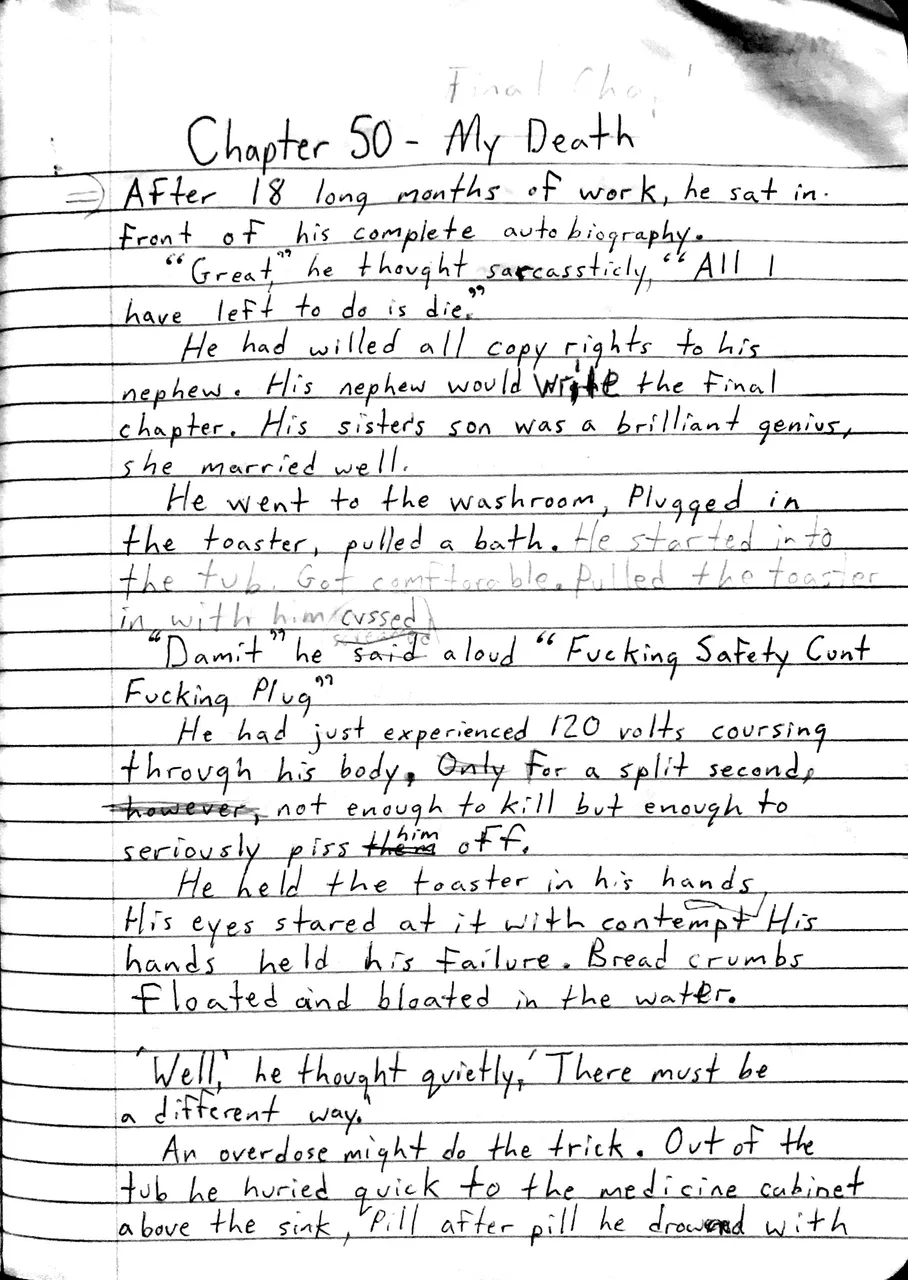 Final Chap
Chapter 50 - My Death
After 18 long months of work, he sat in
front of his complete autobiography.
"Great," he thought sarcassticly, "All I
have left to do is die."
He had willed all copy rights to his
nephew. His nephew would write the final
chapter. His sisters son was a brilliant genius,
she married well.
He went to the washroom, Plugged in
the toaster, pulled a bath. He started into
the tub. Got comftorable. Pulled the toaster
in with him cussed
"Damit" he said aloud "Fucking Safety Cunt
Fucking Plug"
He had just experienced 120 volts coursing
through his body, Only for a split second,
however, not enough to kill but enough to
seriously piss them him off.
He held the toaster in his hands,
His eyes stared at it with contempt His
hands held his failure. Bread crumbs
floated and bloated in the water.
'Well,' he thought quietly, 'There must be
a different way.'
An overdose might do the trick. Out of the
tub he huried quick to the medicine cabinet
above the sink, Pill after pill he drownd with